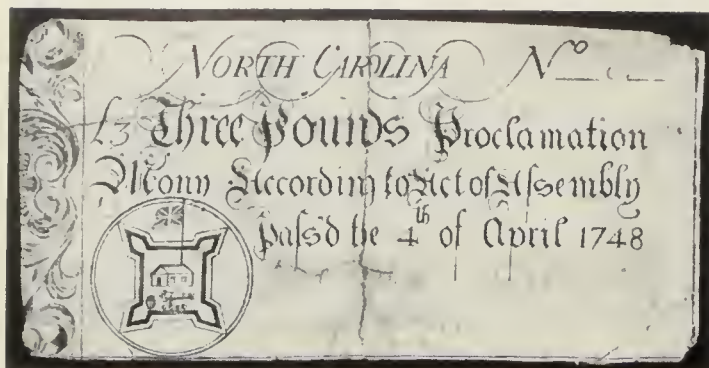 NORTH CAROLINA No
£3 Three Pounds Proclamation
Mony According to Act of Assembly
Paſs'd the 4th of April 1748